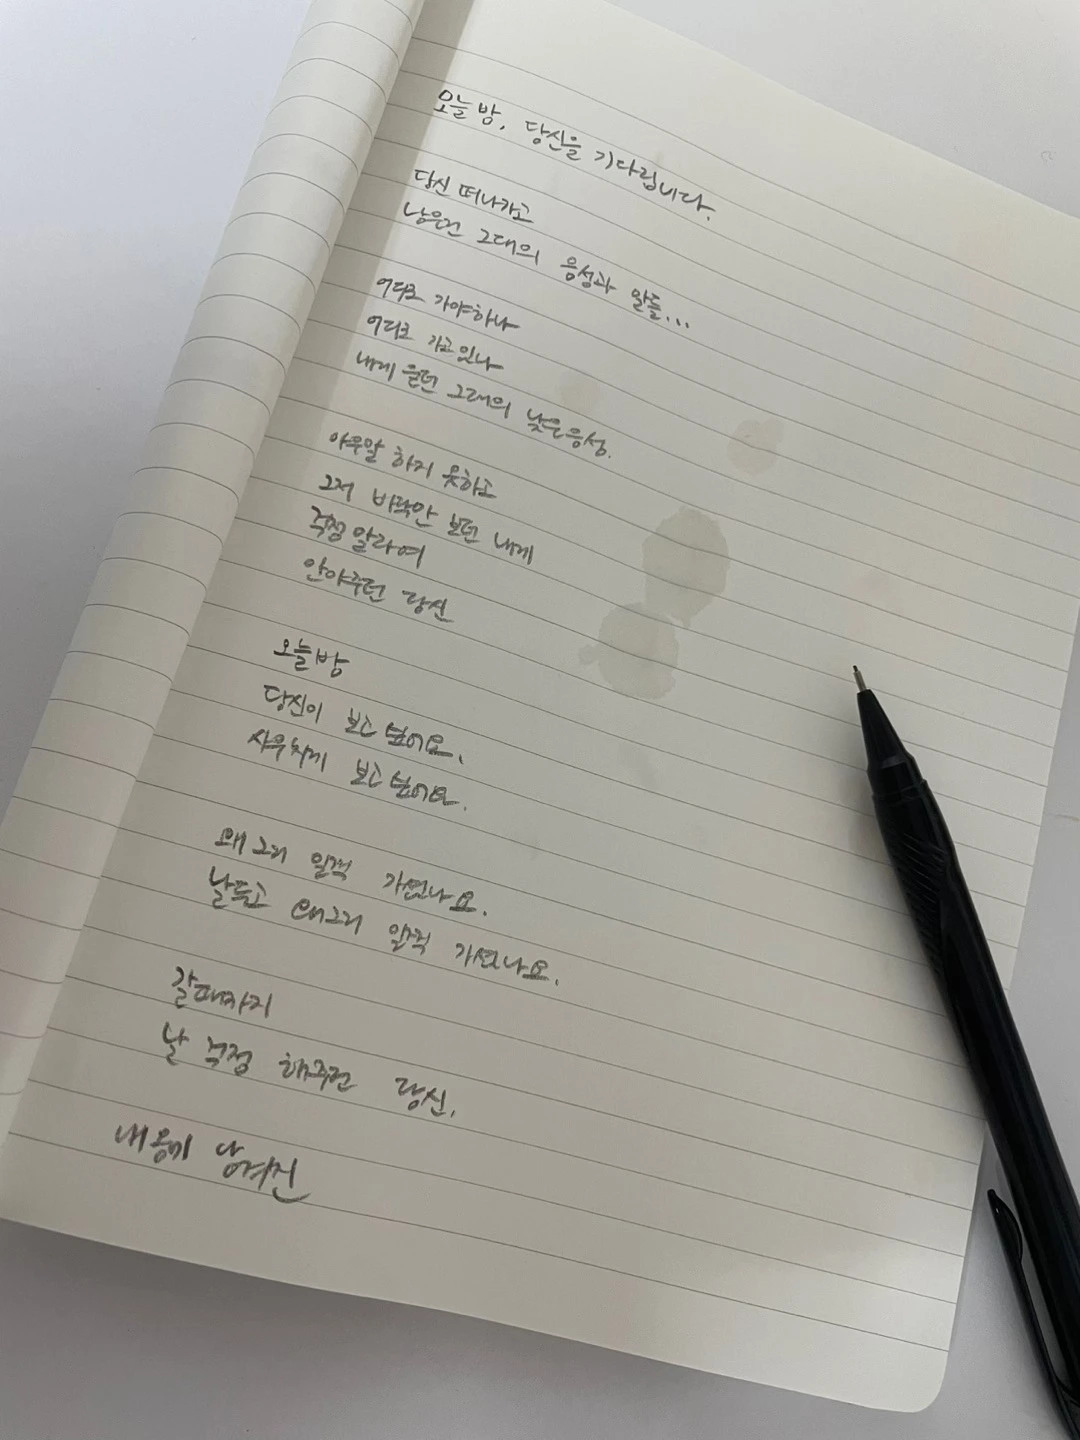 오늘밤, 당신을 기다립니다.
당신 떠나가고
남은건 그대의 음성과 말들...
어디로 가야하나
어디로 가고있나
내게 묻던 그대의 낮은음성.
아무말 하지 못하고
그저 바닥만 보던 내게
걱정말라며
안아주던 당신
오늘밤
당신이 보고싶어요.
사무치게 보고싶어요.
왜 그리 일찍 가셨나요.
날두고 왜그리 일찍 가셨나요.
갈때까지
날 걱정 해주던 당신.